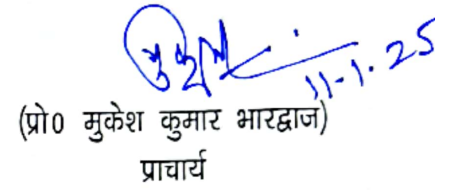 मुकेश
11-1.25
(प्रो0 मुकेश कुमार भारद्वाज)
प्राचार्य